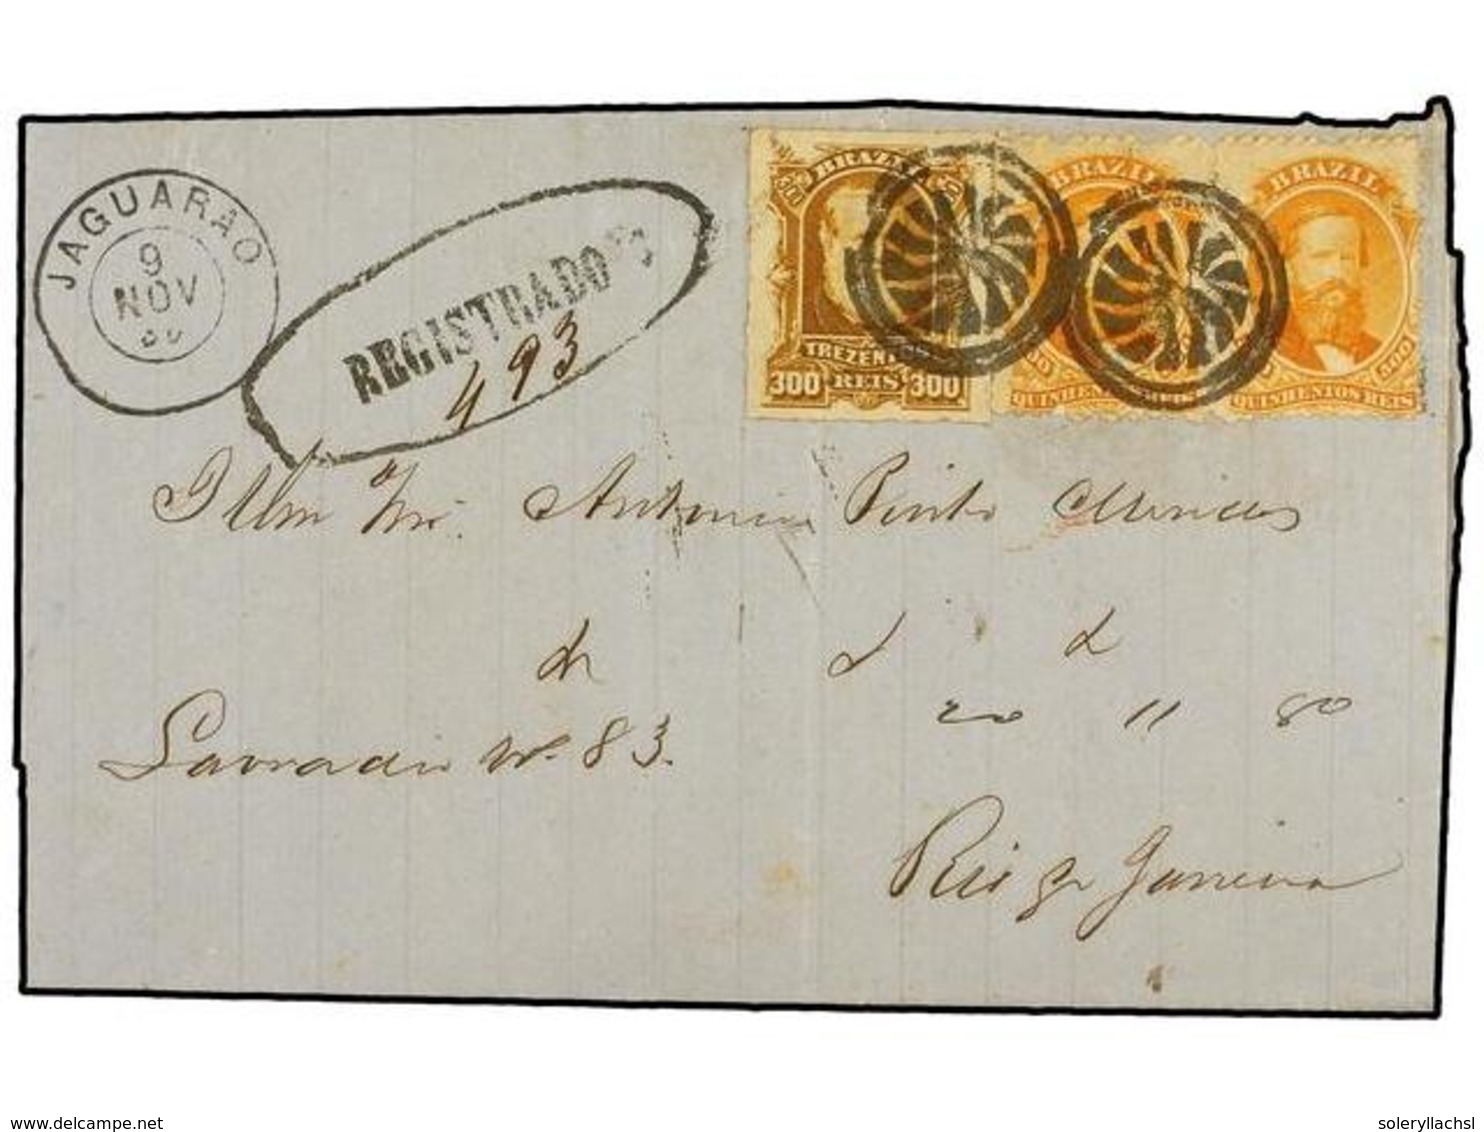 JAGUARAO
9
NOV
80
REGISTRADO
493
BRAZIL
TREZENTOS
300 REIS 300
BRAZIL
QUINHENTOS REIS
BRAZIL
500
QUINHENTOS REIS
Illm Snr. Antonio Pinto Mendes
20 11 80
Lavradio No 83.
Rio de Janeiro
www.delcampe.net
soleryllachsl